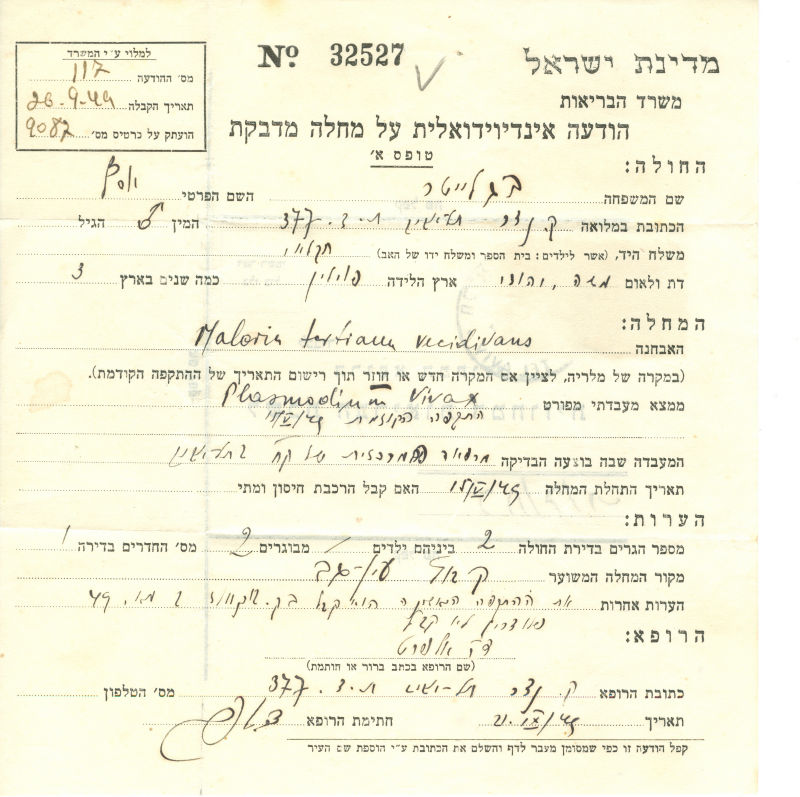 למלוי ע״י המשרד
מס׳ ההודעה 117
תאריך הקבלה 26.9.49
הועתק על כרטיס מס׳ 9087
Nº 32527
מדינת ישראל
משרד הבריאות
הודעה אינדיוידואלית על מחלה מדבקת
טופס א׳
החולה:
שם המשפחה השם הפרטי
הכתובת במלואה ת.ד. 377 המין הגיל
משלח היד, (אשר לילדים: בית הספר ומשלח ידו של האב) חקלאי
דת ולאום משה, יהודי ארץ הלידה פולין כמה שנים בארץ 3
המחלה:
האבחנה Malaria tertiana recidivans
(במקרה של מלריה, לציין אם המקרה חדש או חוזר תוך רישום התאריך של ההתקפה הקודמת).
ממצא מעבדתי מפורט Plasmodium Vivax
התקפה הקודמת
המעבדה שבה בוצעה הבדיקה המרכזית של
תאריך התחלת המחלה האם קבל הרכבת חיסון ומתי
הערות:
מספר הגרים בדירת החולה 2 ביניהם ילדים / מבוגרים 2 מס׳ החדרים בדירה 1
מקור המחלה המשוער עין-גב
הערות אחרות את ההתקפה הראשונה הוא קבל 49
לא קבל
הרופא:
ד״ר
(שם הרופא בכתב ברור או חותמת)
כתובת הרופא ת.ד. 377 מס׳ הטלפון
תאריך 21.IX.49 חתימת הרופא
קפל הודעה זו כפי שמסומן מעבר לדף והשלם את הכתובת ע״י הוספת שם העיר